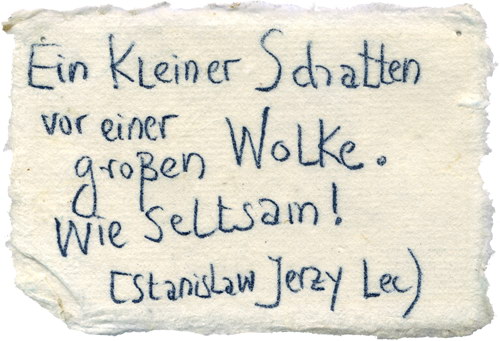 Ein Kleiner Schatten
vor einer
großen Wolke.
Wie seltsam!
[Stanislaw Jerzy Lec)